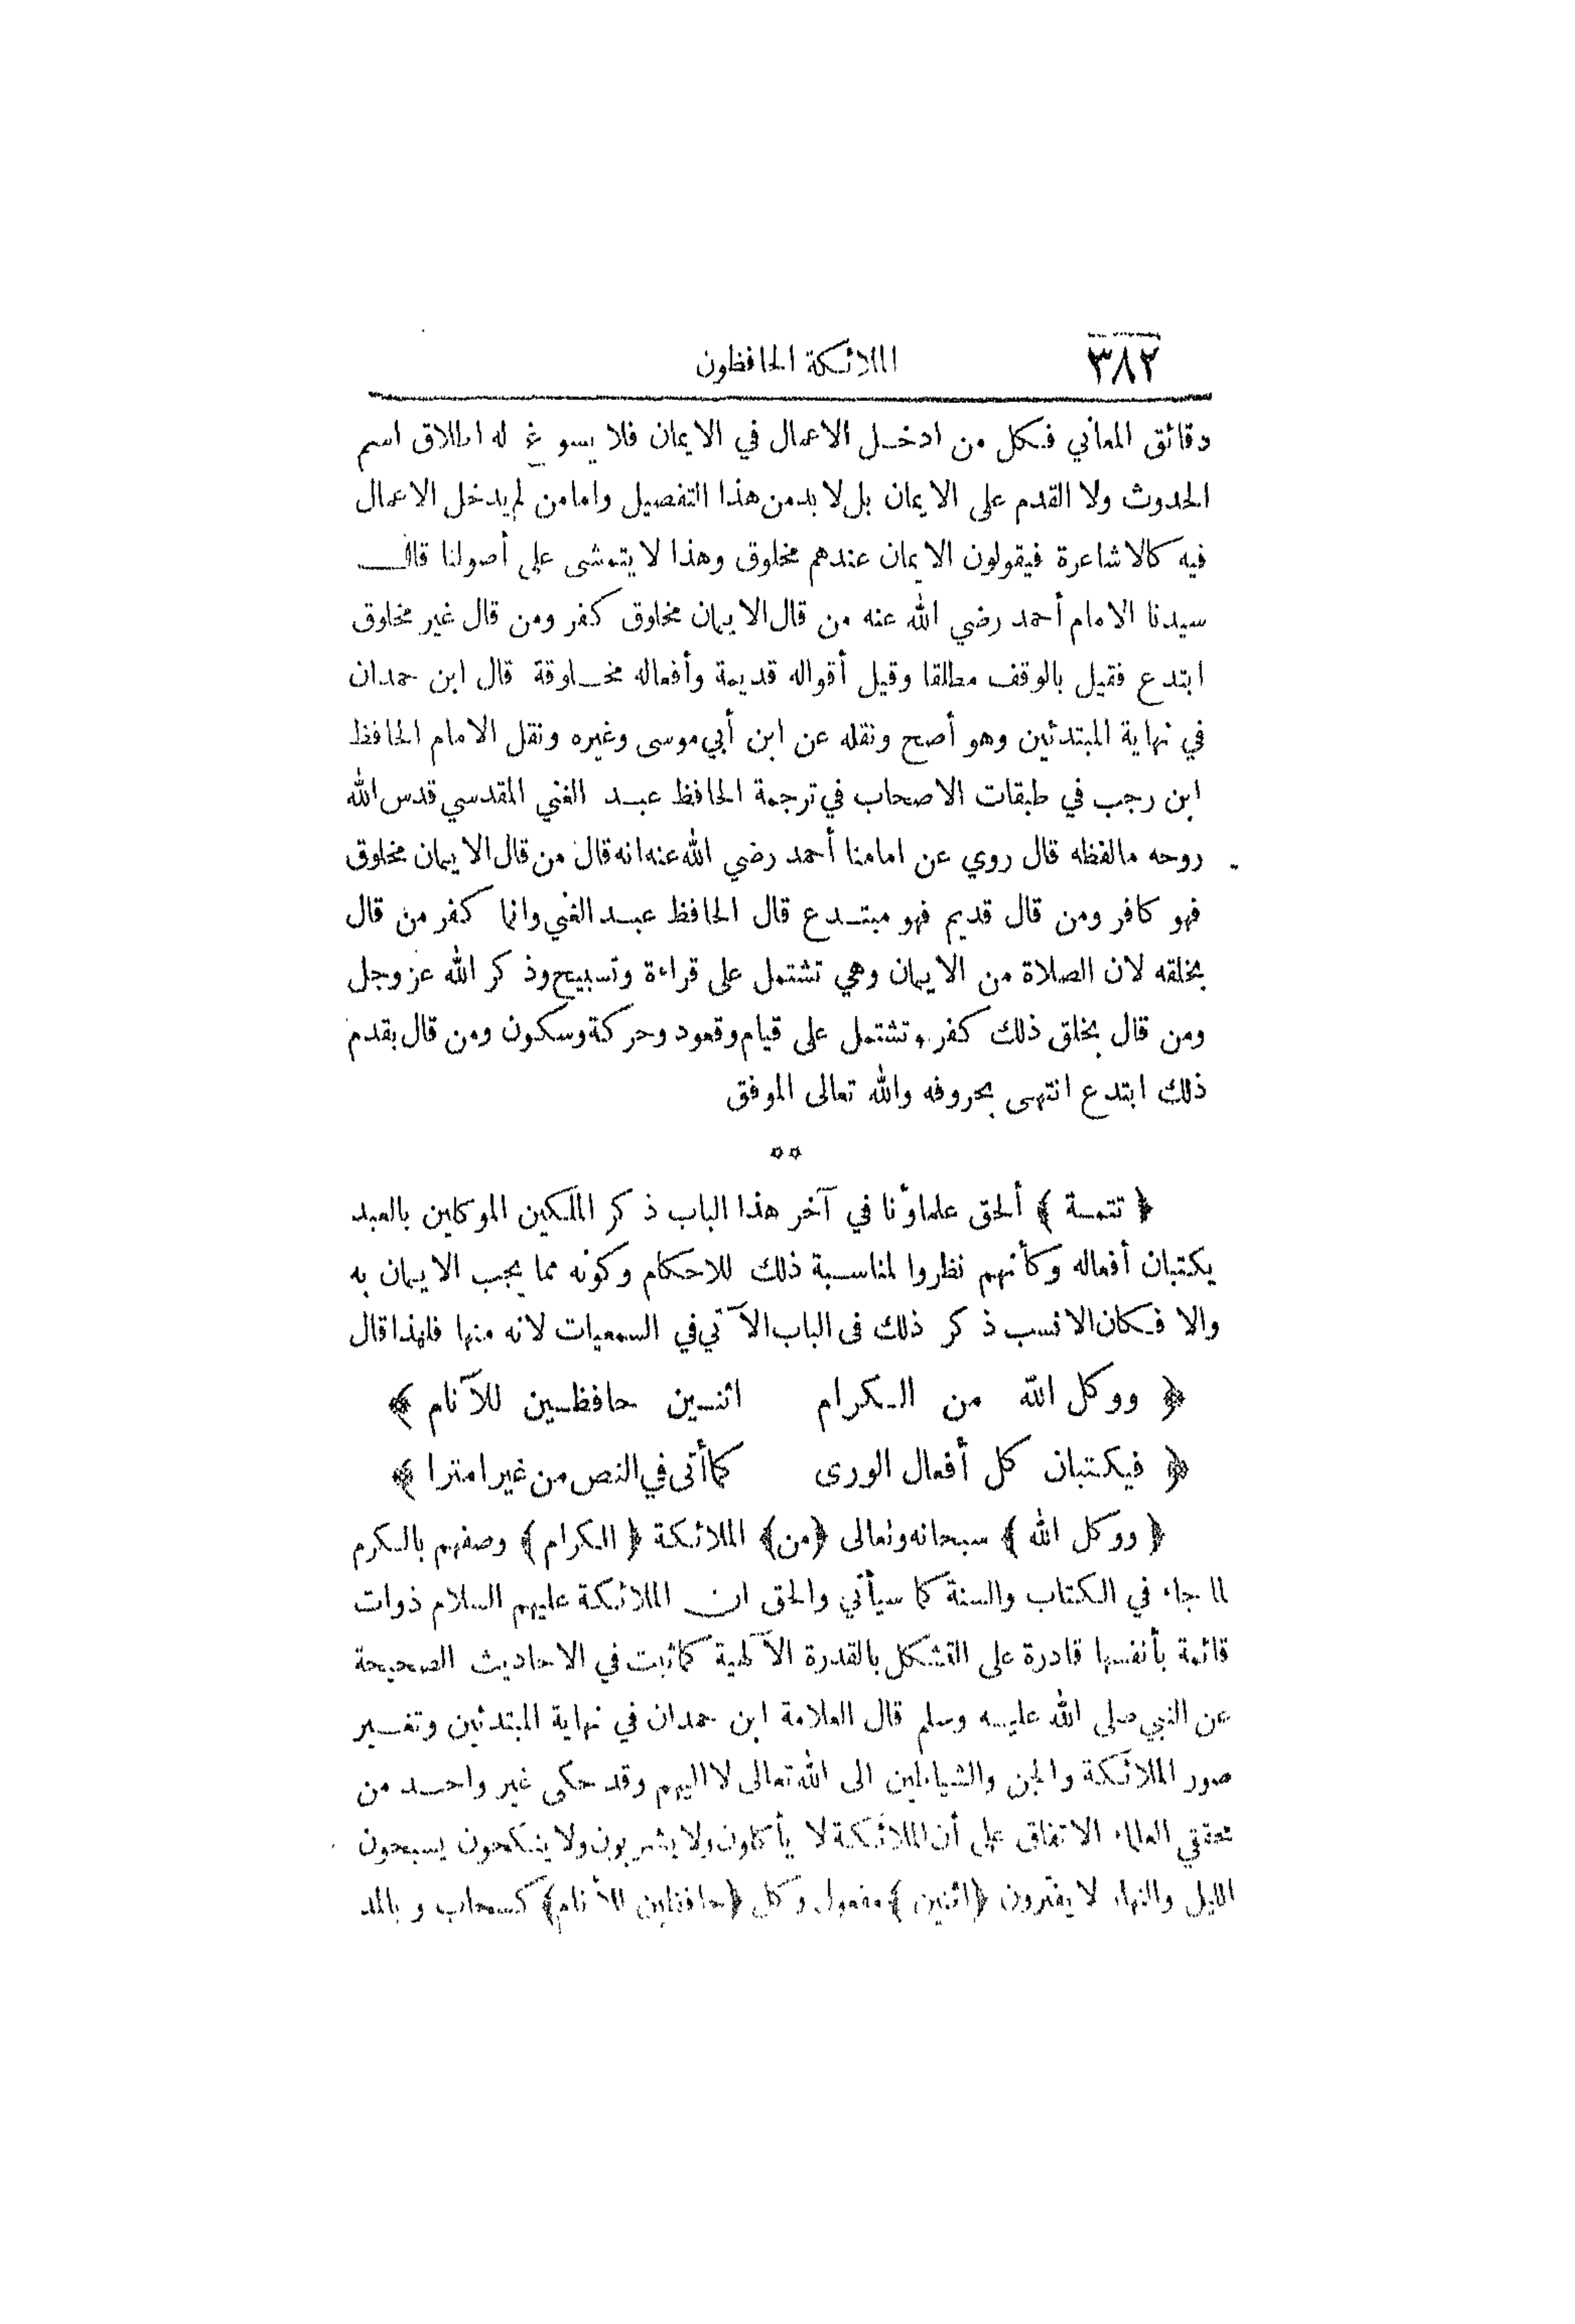 ٣٨٢ الملائكة الحافظون
دقائق المعاني فكل من ادخل الاعمال في الايمان فلا يسوغ له اطلاق اسم
الحدوث ولا القدم على الايمان بل لا بد من هذا التفصيل واما من لم يدخل الاعمال
فيه كالاشاعرة فيقولون الايمان عندهم مخلوق وهذا لا يتمشى على أصولنا قال
سيدنا الامام أحمد رضي الله عنه من قال الايمان مخلوق كفر ومن قال غير مخلوق
ابتدع فقيل بالوقف مطلقا وقيل أقواله قديمة وأفعاله مخلوقة قال ابن حمدان
في نهاية المبتدئين وهو أصح ونقله عن ابن أبي موسى وغيره ونقل الامام الحافظ
ابن رجب في طبقات الاصحاب في ترجمة الحافظ عبد الغني المقدسي قدس الله
روحه مالفظه قال روي عن امامنا أحمد رضي الله عنه انه قال من قال الايمان مخلوق
فهو كافر ومن قال قديم فهو مبتدع قال الحافظ عبد الغني وانما كفر من قال
بخلقه لان الصلاة من الايمان وهي تشتمل على قراءة وتسبيح وذكر الله عز وجل
ومن قال بخلق ذلك كفر وتشتمل على قيام وقعود وحركة وسكون ومن قال بقدم
ذلك ابتدع انتهى بحروفه والله تعالى الموفق
﴿ تتمة ﴾ ألحق علماؤنا في آخر هذا الباب ذكر الملكين الموكلين بالعبد
يكتبان أفعاله وكأنهم نظروا لمناسبة ذلك للاحكام وكونه مما يجب الايمان به
والا فكان الانسب ذكر ذلك في الباب الآتي في السمعيات لانه منها فلهذا قال
﴿ ووكل الله من الكرام اثنين حافظين للآنام ﴾
﴿ فيكتبان كل أفعال الورى كما أتى في النص من غير امترا ﴾
﴿ ووكل الله ﴾ سبحانه وتعالى ﴿من﴾ الملائكة ﴿ الكرام ﴾ وصفهم بالكرم
لما جاء في الكتاب والسنة كما سيأتي والحق ان الملائكة عليهم السلام ذوات
قائمة بأنفسها قادرة على التشكل بالقدرة الآلهية كما ثبت في الاحاديث الصحيحة
عن النبي صلى الله عليه وسلم قال العلامة ابن حمدان في نهاية المبتدئين وتغيير
صور الملائكة والجن والشياطين الى الله تعالى لا اليهم وقد حكى غير واحد من
محققي العلماء الاتفاق على أن الملائكة لا يأكلون ولا يشربون ولا ينكحون يسبحون
الليل والنهار لا يفترون ﴿اثنين﴾ مفعول وكل ﴿حافظين للأنام﴾ كسحاب وبالمد